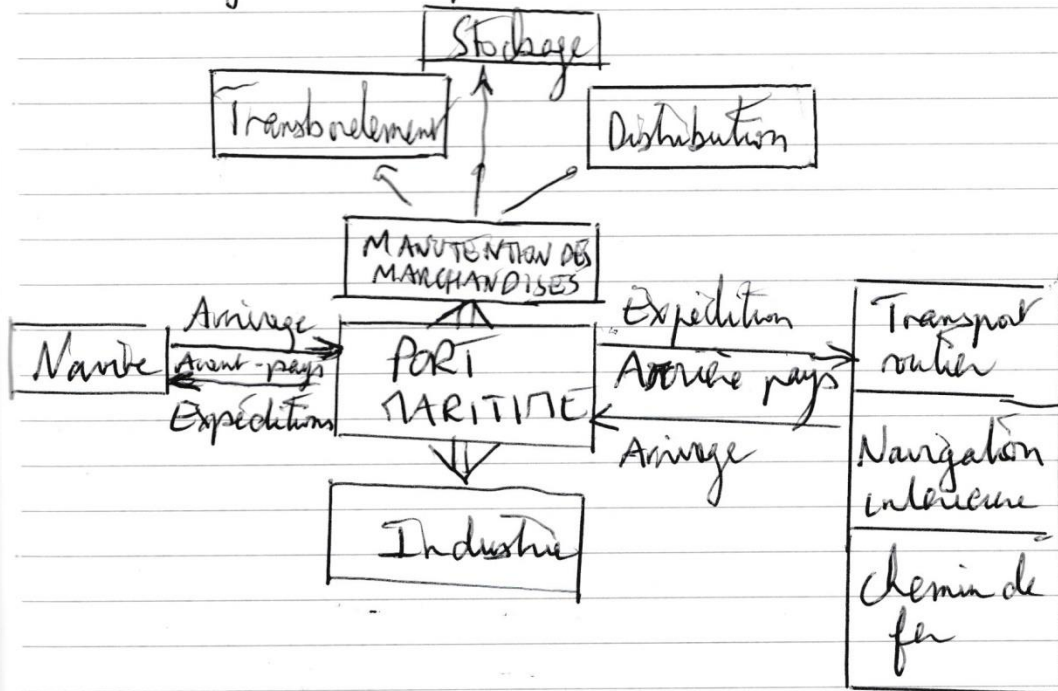 Stockage
Transbordement
Distribution
MANUTENTION DES
MARCHANDISES
Arrivage
Navire
Avant-pays
Expéditions
PORT
MARITIME
Expédition
Arrière pays
Arrivage
Transport
routier
Navigation
intérieure
chemin de
fer
Industrie